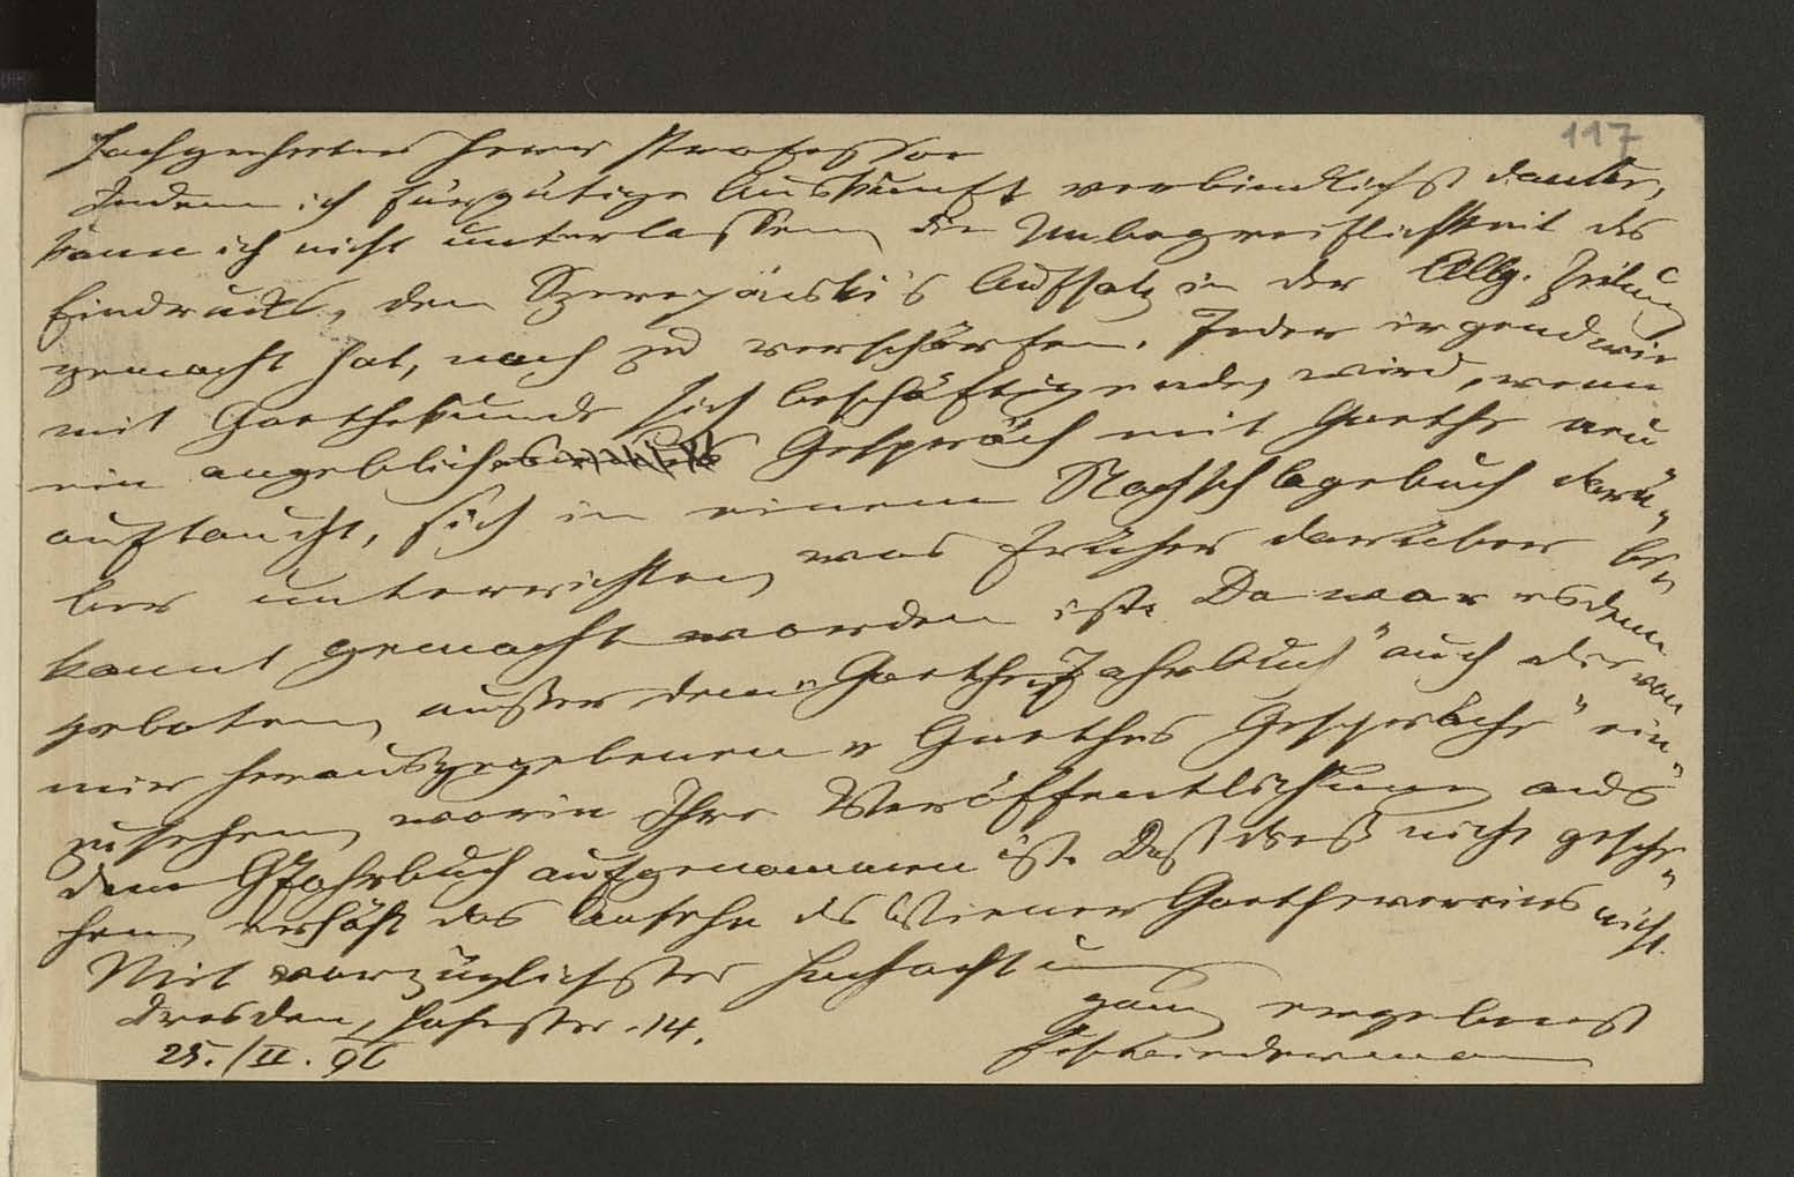 117
Hochgeehrter Herr Professor
Indem ich für gütige Auskunft verbindlichst danke,
kann ich nicht unterlassen, die Unbegreiflichkeit des
Eindrucks, den Szczepański's Aufsatz in der Allg. Zeitung
gemacht hat, noch zu verschärfen. Jeder irgendwie
mit Goethekunde sich beschäftigende, wird, wenn
ein angebliches Gespräch mit Goethe neu
auftaucht, sich in einem Nachschlagebuch darü-
ber unterrichten, was früher darüber be-
kannt gemacht worden ist. Da war es denn
geboten, außer dem „Goethe-Jahrbuch" auch die von
mir herausgegebenen „Goethes Gespräche" ein-
zusehen, worin Ihre Veröffentlichung aus
dem GJahrbuch aufgenommen ist. Daß dies nicht gesche-
hen, erhöht das Ansehn des Wiener Goethevereins nicht.
Mit vorzüglichster Hochachtung
ganz ergebenst
Dresden, 14.
25./II. 96
Biedermann